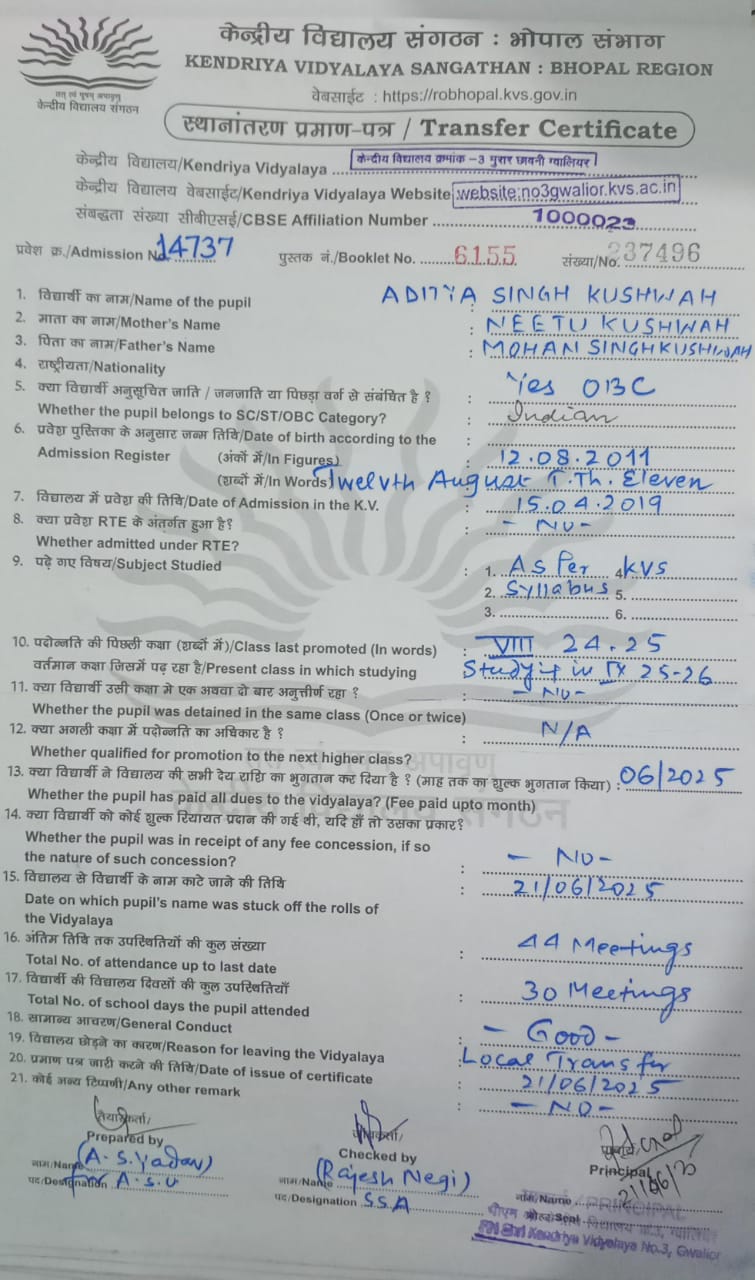 केन्द्रीय विद्यालय संगठन : भोपाल संभाग
KENDRIYA VIDYALAYA SANGATHAN : BHOPAL REGION
तत् त्वं पूषन् अपावृणु
केन्द्रीय विद्यालय संगठन
वेबसाईट : https://robhopal.kvs.gov.in
स्थानांतरण प्रमाण-पत्र / Transfer Certificate
केन्द्रीय विद्यालय/Kendriya Vidyalaya केन्द्रीय विद्यालय क्रमांक -3 मुरार छावनी ग्वालियर
केन्द्रीय विद्यालय वेबसाईट/Kendriya Vidyalaya Website website:no3gwalior.kvs.ac.in
संबद्धता संख्या सीबीएसई/CBSE Affiliation Number 1000023
प्रवेश क्र./Admission No. 14737 पुस्तक नं./Booklet No. 6155 संख्या/No. 237496
1. विद्यार्थी का नाम/Name of the pupil ADITYA SINGH KUSHWAH
2. माता का नाम/Mother's Name : NEETU KUSHWAH
3. पिता का नाम/Father's Name : MOHAN SINGH KUSHWAH
4. राष्ट्रीयता/Nationality
5. क्या विद्यार्थी अनुसूचित जाति / जनजाति या पिछड़ा वर्ग से संबंधित है ? : Yes OBC
Whether the pupil belongs to SC/ST/OBC Category? : Indian
6. प्रवेश पुस्तिका के अनुसार जन्म तिथि/Date of birth according to the :
Admission Register (अंकों में/In Figures) : 12.08.2011
(शब्दों में/In Words) Twelvth August T.Th. Eleven
7. विद्यालय में प्रवेश की तिथि/Date of Admission in the K.V. : 15.04.2019
8. क्या प्रवेश RTE के अंतर्गत हुआ है? : - NO -
Whether admitted under RTE?
9. पढ़े गए विषय/Subject Studied : 1. As Per 4. KVS
2. Syllabus 5.
3. 6.
10. पदोन्नति की पिछली कक्षा (शब्दों में)/Class last promoted (In words) : VIII 24.25
वर्तमान कक्षा जिसमें पढ़ रहा है/Present class in which studying Studyig in IX 25-26
11. क्या विद्यार्थी उसी कक्षा मे एक अथवा दो बार अनुत्तीर्ण रहा ? : - NO -
Whether the pupil was detained in the same class (Once or twice)
12. क्या अगली कक्षा में पदोन्नति का अधिकार है ? : N/A
Whether qualified for promotion to the next higher class?
13. क्या विद्यार्थी ने विद्यालय की सभी देय राशि का भुगतान कर दिया है ? (माह तक का शुल्क भुगतान किया) : 06/2025
Whether the pupil has paid all dues to the vidyalaya? (Fee paid upto month)
14. क्या विद्यार्थी को कोई शुल्क रियायत प्रदान की गई थी, यदि हाँ तो उसका प्रकार?
Whether the pupil was in receipt of any fee concession, if so
the nature of such concession? : - NO -
15. विद्यालय से विद्यार्थी के नाम काटे जाने की तिथि : 21/06/2025
Date on which pupil's name was stuck off the rolls of
the Vidyalaya
16. अंतिम तिथि तक उपस्थितियों की कुल संख्या : 44 Meetings
Total No. of attendance up to last date
17. विद्यार्थी की विद्यालय दिवसों की कुल उपस्थितियाँ : 30 Meetings
Total No. of school days the pupil attended
18. सामान्य आचरण/General Conduct : - Good -
19. विद्यालय छोड़ने का कारण/Reason for leaving the Vidyalaya : Local Transfer
20. प्रमाण पत्र जारी करने की तिथि/Date of issue of certificate : 21/06/2025
21. कोई अन्य टिप्पणी/Any other remark : - NO -
तैयारकर्ता/
Prepared by
नाम/Name (A.S.Yadav)
पद/Designation A.S.O
Checked by
नाम/Name (Rajesh Negi)
पद/Designation S.S.A
प्राचार्य/
Principal
21/06/20
नाम/Name PRINCIPAL
Seal
PM Shri Kendriya Vidyalaya No.3, Gwalior